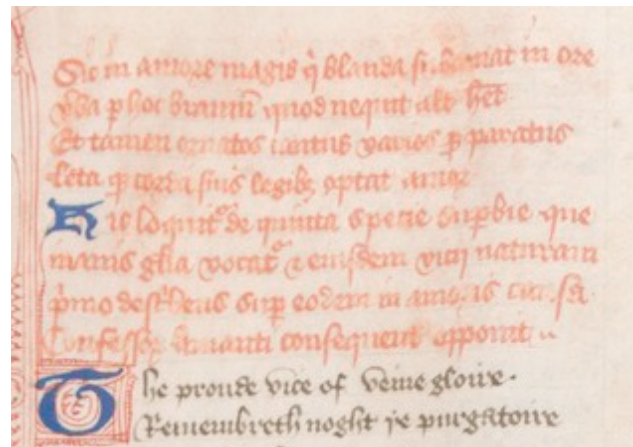 Sic in amore magis q̄ blanda subornat in ore
Vba p hoc brauiū quod nequit alt het
Et tamen ornatos cantus varios qꝫ paratus
Leta qꝫ corda suis legibꝫ optat amor
Hic loquit᷑ de quinta specie supbie que
inanis gl̄ia vocat᷑ & eiusdem vicij naturam
p̄mo desc̄bens sup eodem in amoris causa
Confessor Amanti consequent᷑ opponit
The proude vice of veine gloire
Remembreth noght þe purgatoire